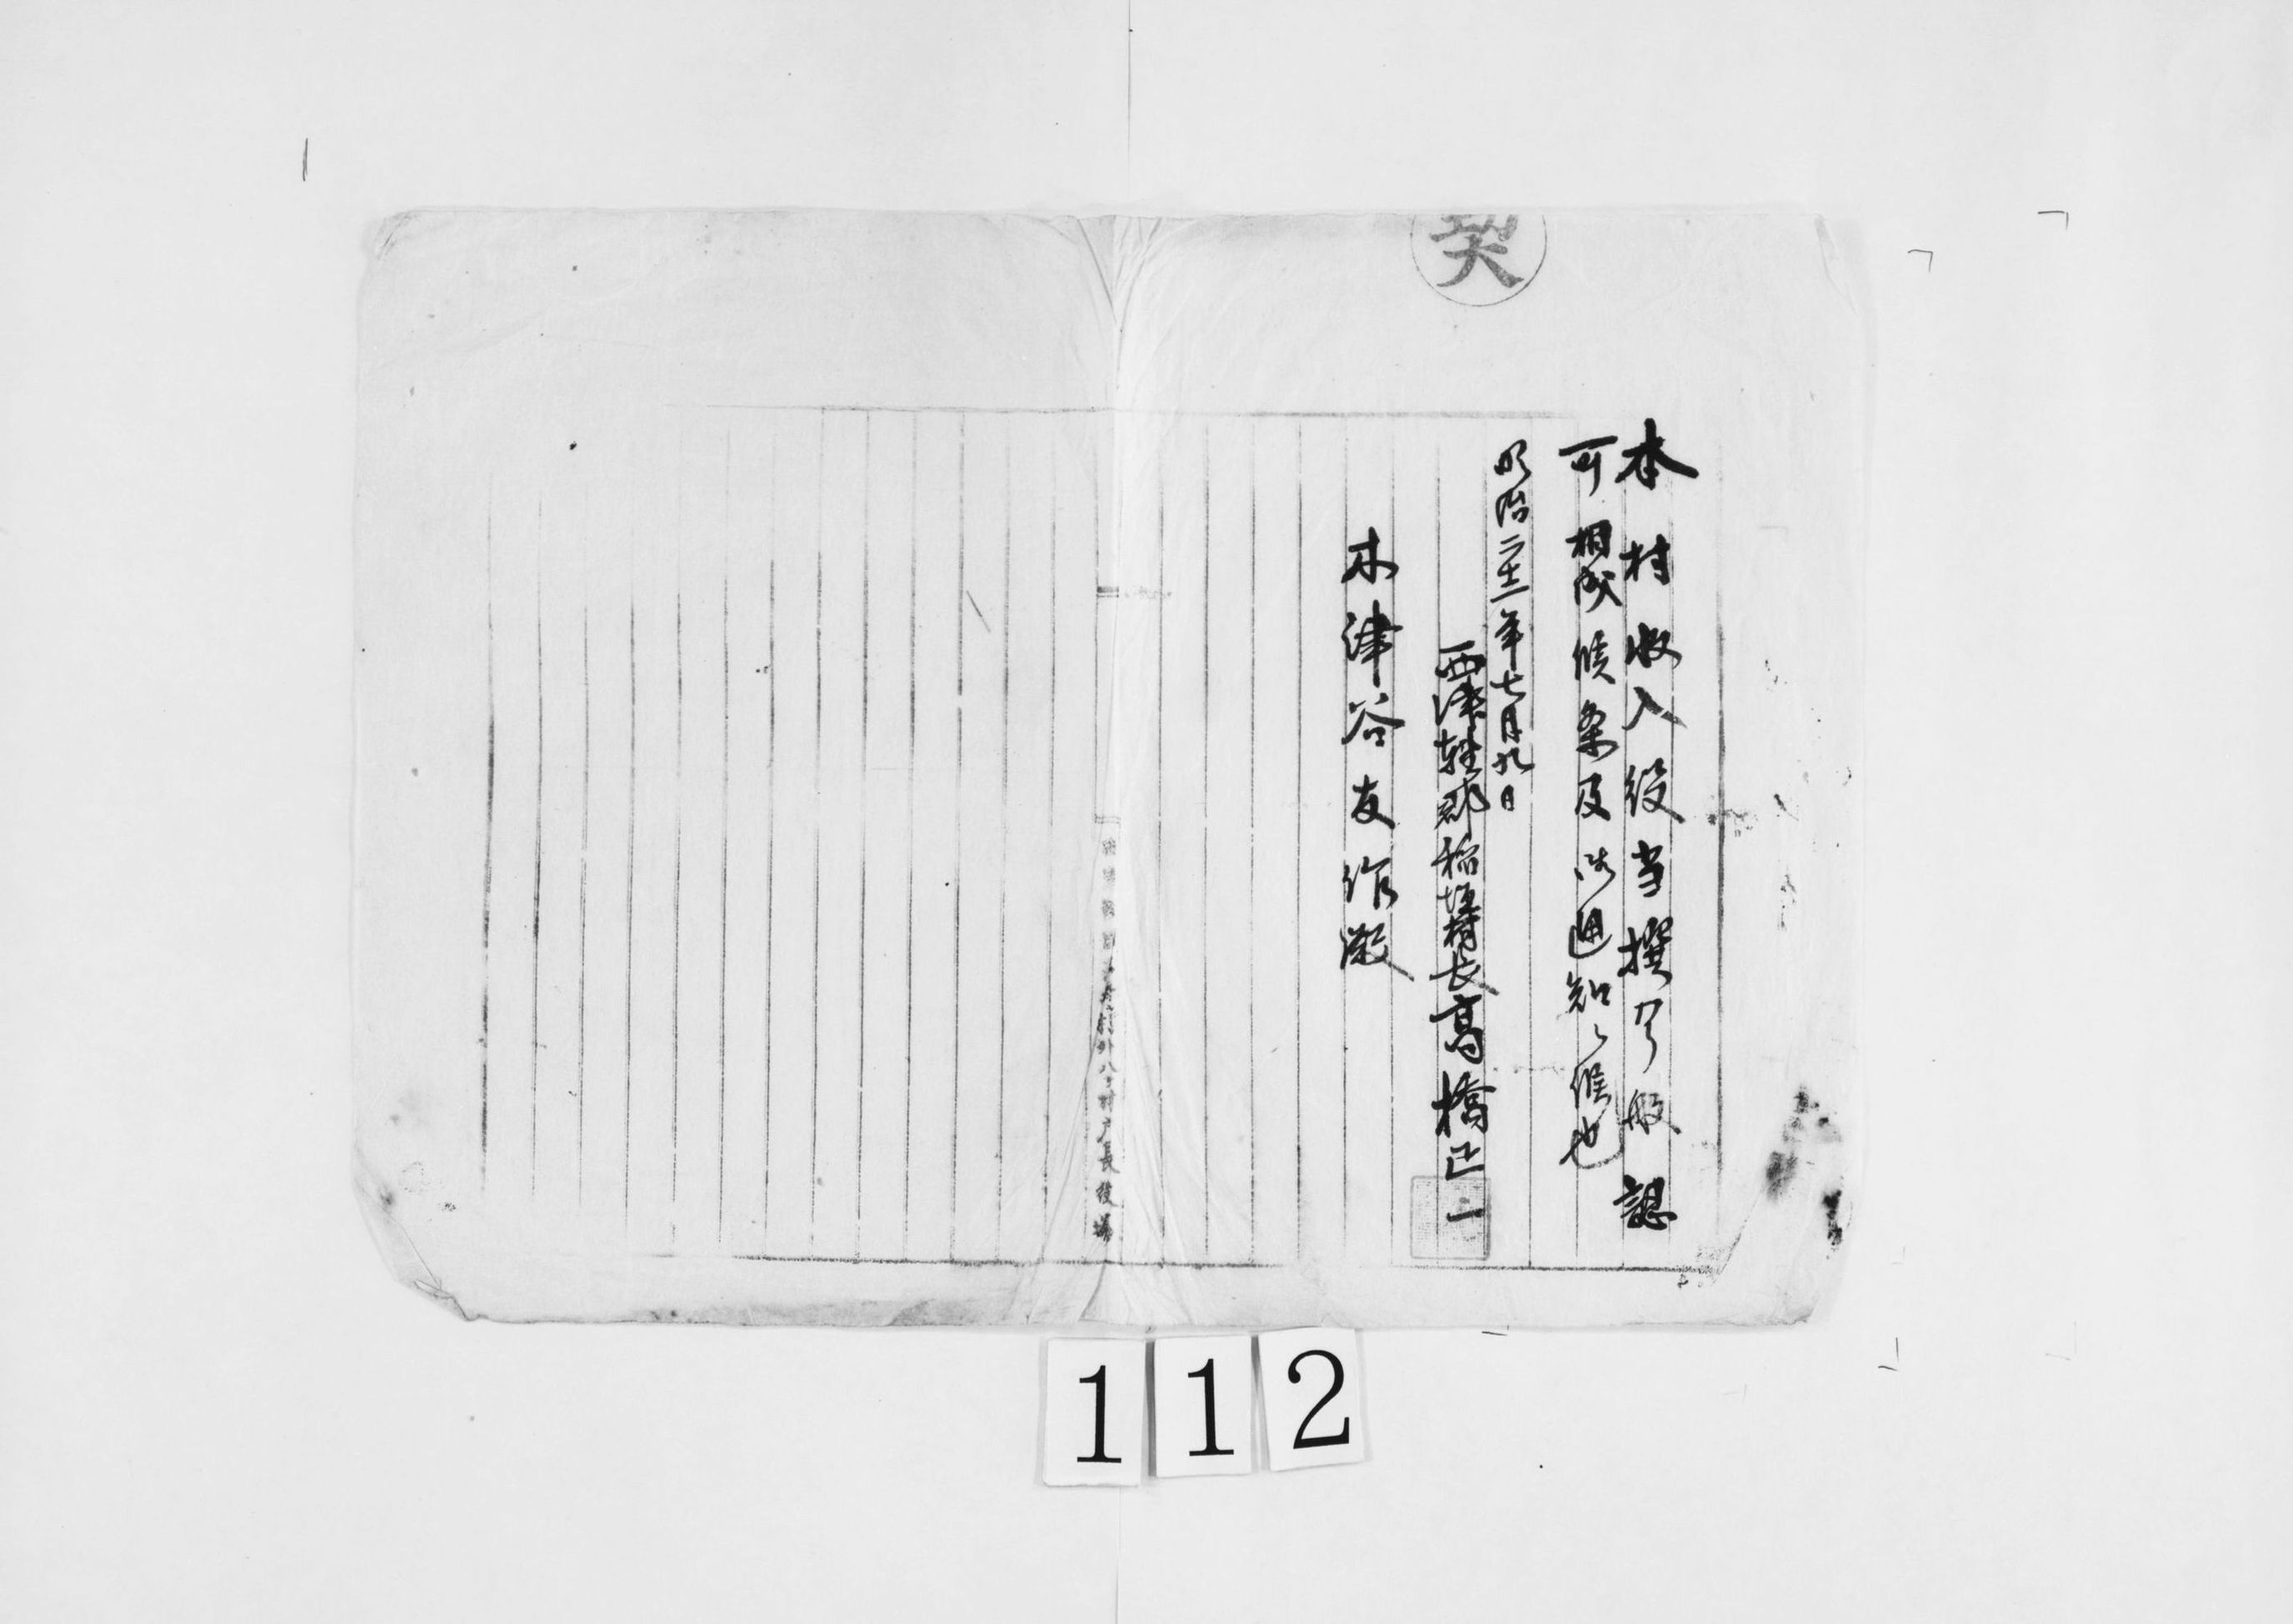 契
本村収入役当撰ノ段認
可相成候条及御通知候也
明治二十二年七月九日
西津軽郡稲垣村長高橋正
木津谷友作殿
外八ヶ村戸長役場
112